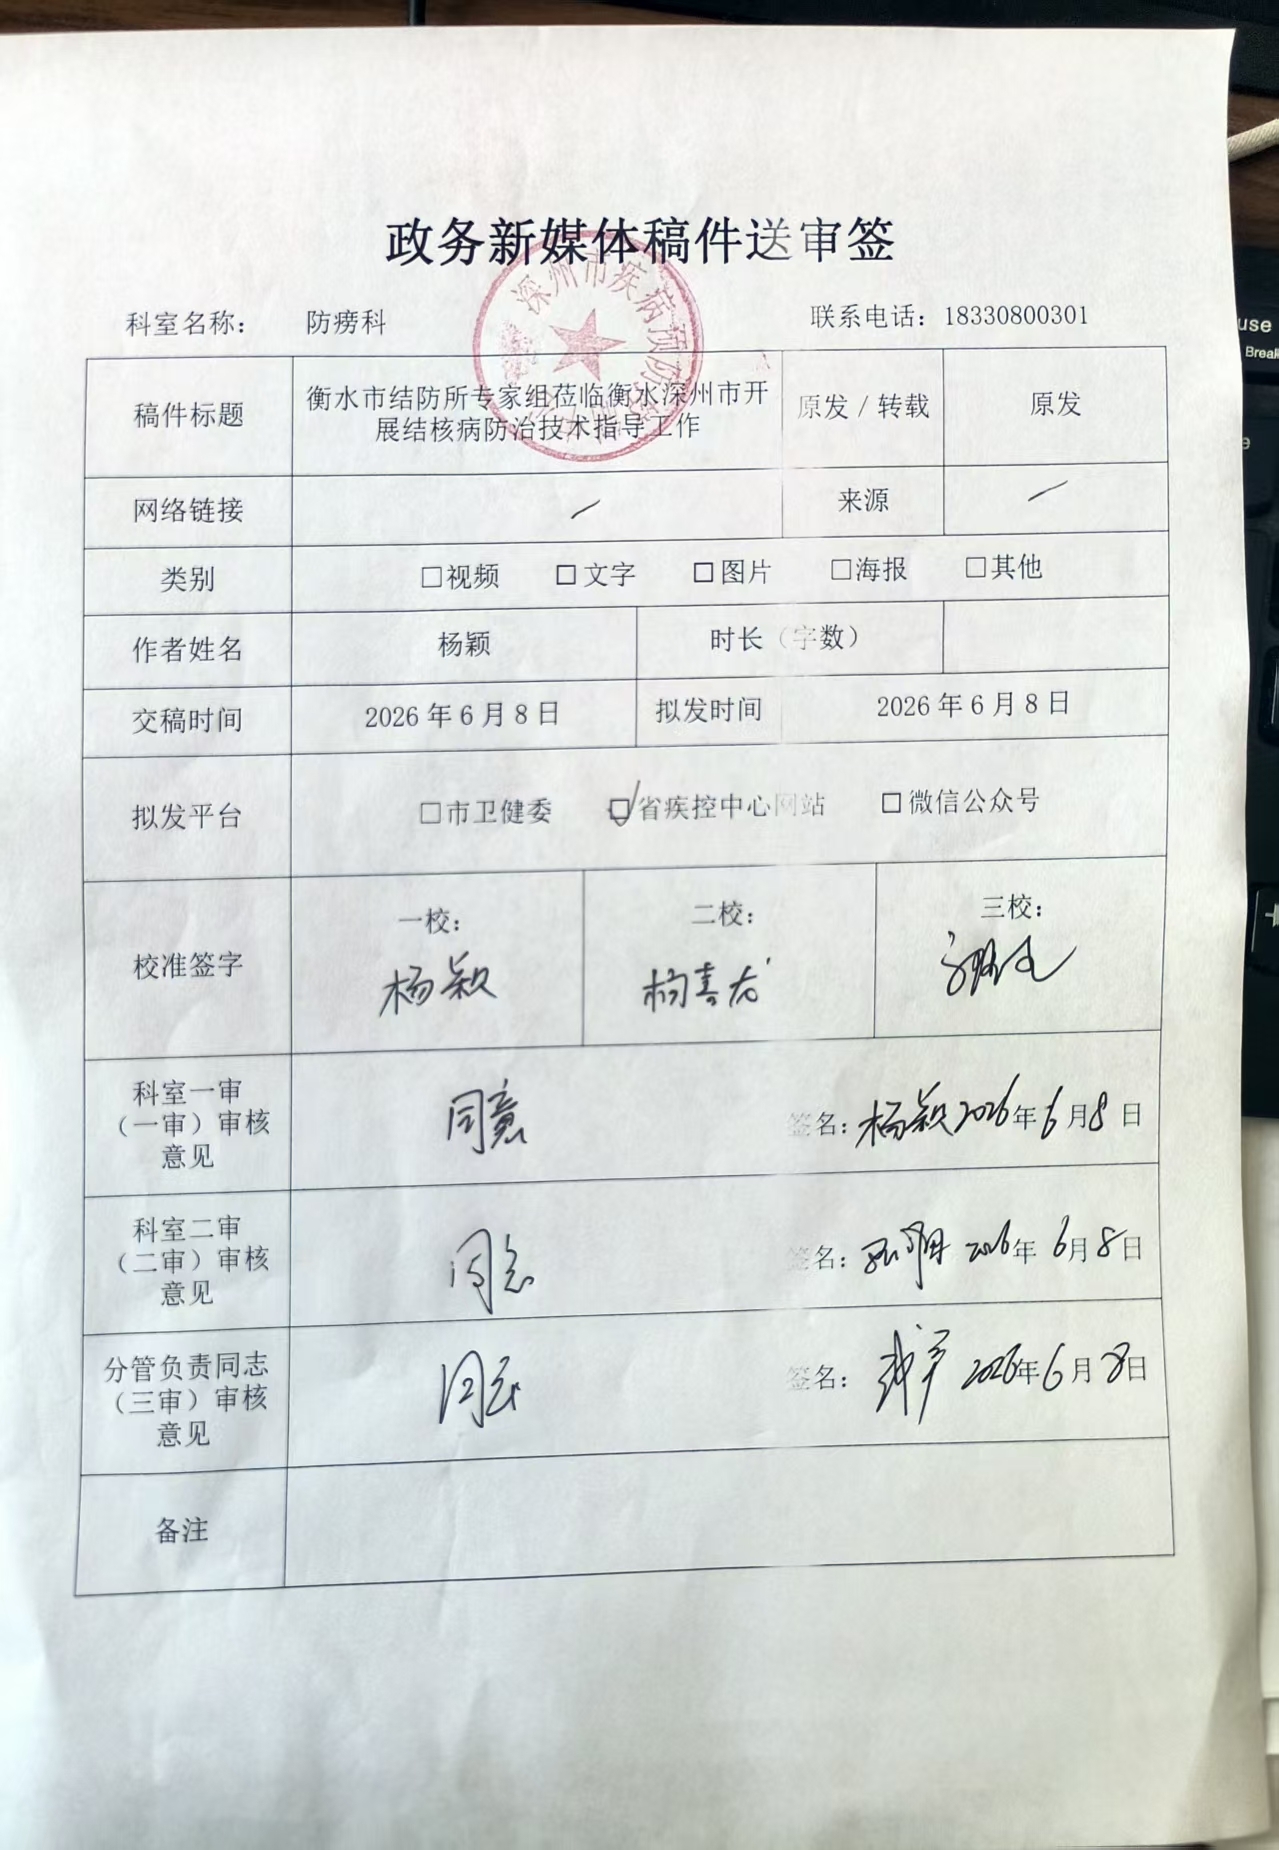 政务新媒体稿件送审签
深州市疾病预防
科室名称： 防痨科 联系电话：18330800301
稿件标题 衡水市结防所专家组莅临衡水深州市开 原发/转载 原发
展结核病防治技术指导工作
网络链接 / 来源 /
类别 □视频 □文字 □图片 □海报 □其他
作者姓名 杨颖 时长（字数）
交稿时间 2026年6月8日 拟发时间 2026年6月8日
拟发平台 □市卫健委 ☑省疾控中心网站 □微信公众号
校准签字 一校： 二校： 三校：
杨颖
科室一审
（一审）审核
意见
同意 签名：杨颖 2026年6月8日
科室二审
（二审）审核
意见
同意 签名： 2026年6月8日
分管负责同志
（三审）审核
意见
同意 签名： 2026年6月8日
备注
use
Break